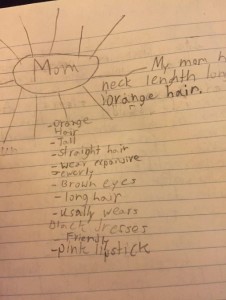 Mom
My mom h
neck length lon
orange hair.
-orange
Hair
-Tall
-straight hair
-wear expensive
Jewerly
-Brown eyes
-long hair
-usally wears
black dresses
-Friendly
-pink lipstick